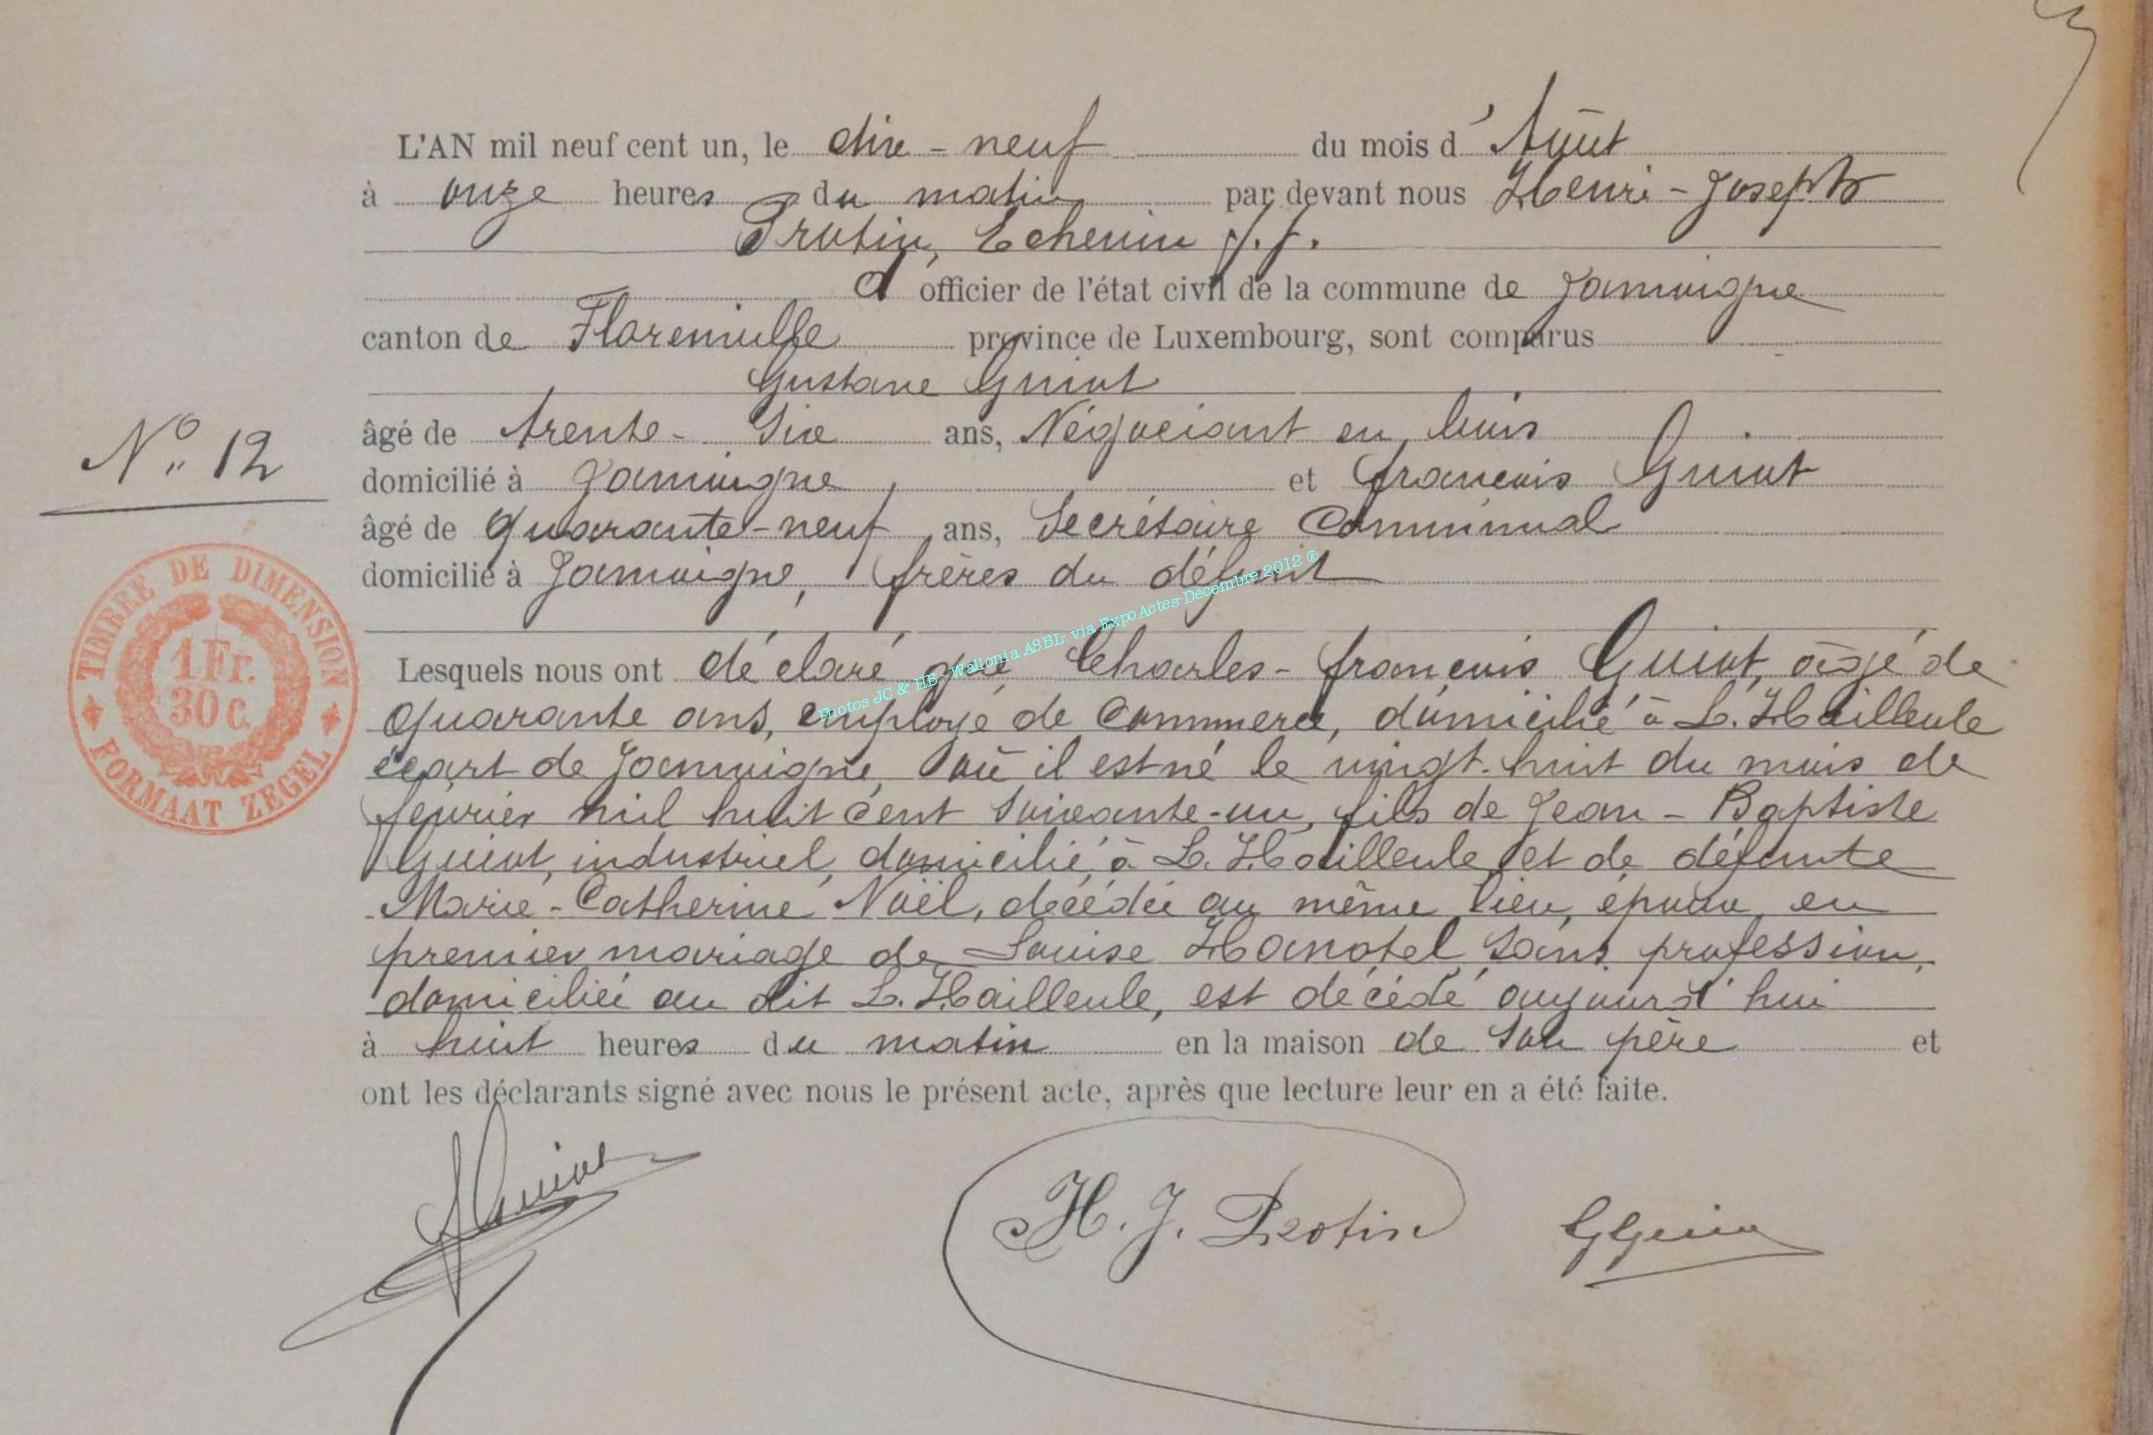 L'AN mil neuf cent un, le dix-neuf du mois d'Août
à onze heures du matin par devant nous Henri-Joseph
Protin, Echevin f.f.
d'officier de l'état civil de la commune de Jamoigne
canton de Florenville province de Luxembourg, sont comparus
Gustave Guiot
âgé de trente-six ans, Négociant en bois
domicilié à Jamoigne, et françois Guiot
No 12
âgé de quarante-neuf ans, Secrétaire Communal
domicilié à Jamoigne, frères du défunt
Photos JC & HB-Wallonia ASBL via ExpoActes-Décembre 2012 ®
TIMBRE DE DIMENSION
1 Fr.
30 c.
FORMAAT ZEGEL
Lesquels nous ont déclaré que Charles-françois Guiot, âgé de
quarante ans, employé de Commerce, domicilié à L. Hailleule
écart de Jamoigne, où il est né le vingt-huit du mois de
février mil huit cent soixante-un, fils de Jean-Baptiste
Guiot, industriel, domicilié à L. Hailleule et de défunte
Marie-Catherine Noël, décédée au même lieu, époux en
premier mariage de Louise Hanotel, sans profession,
domiciliée au dit L. Hailleule, est décédé aujourd'hui
à huit heures du matin en la maison de son père et
ont les déclarants signé avec nous le présent acte, après que lecture leur en a été faite.
Guiot
H. J. Protin
G Guiot